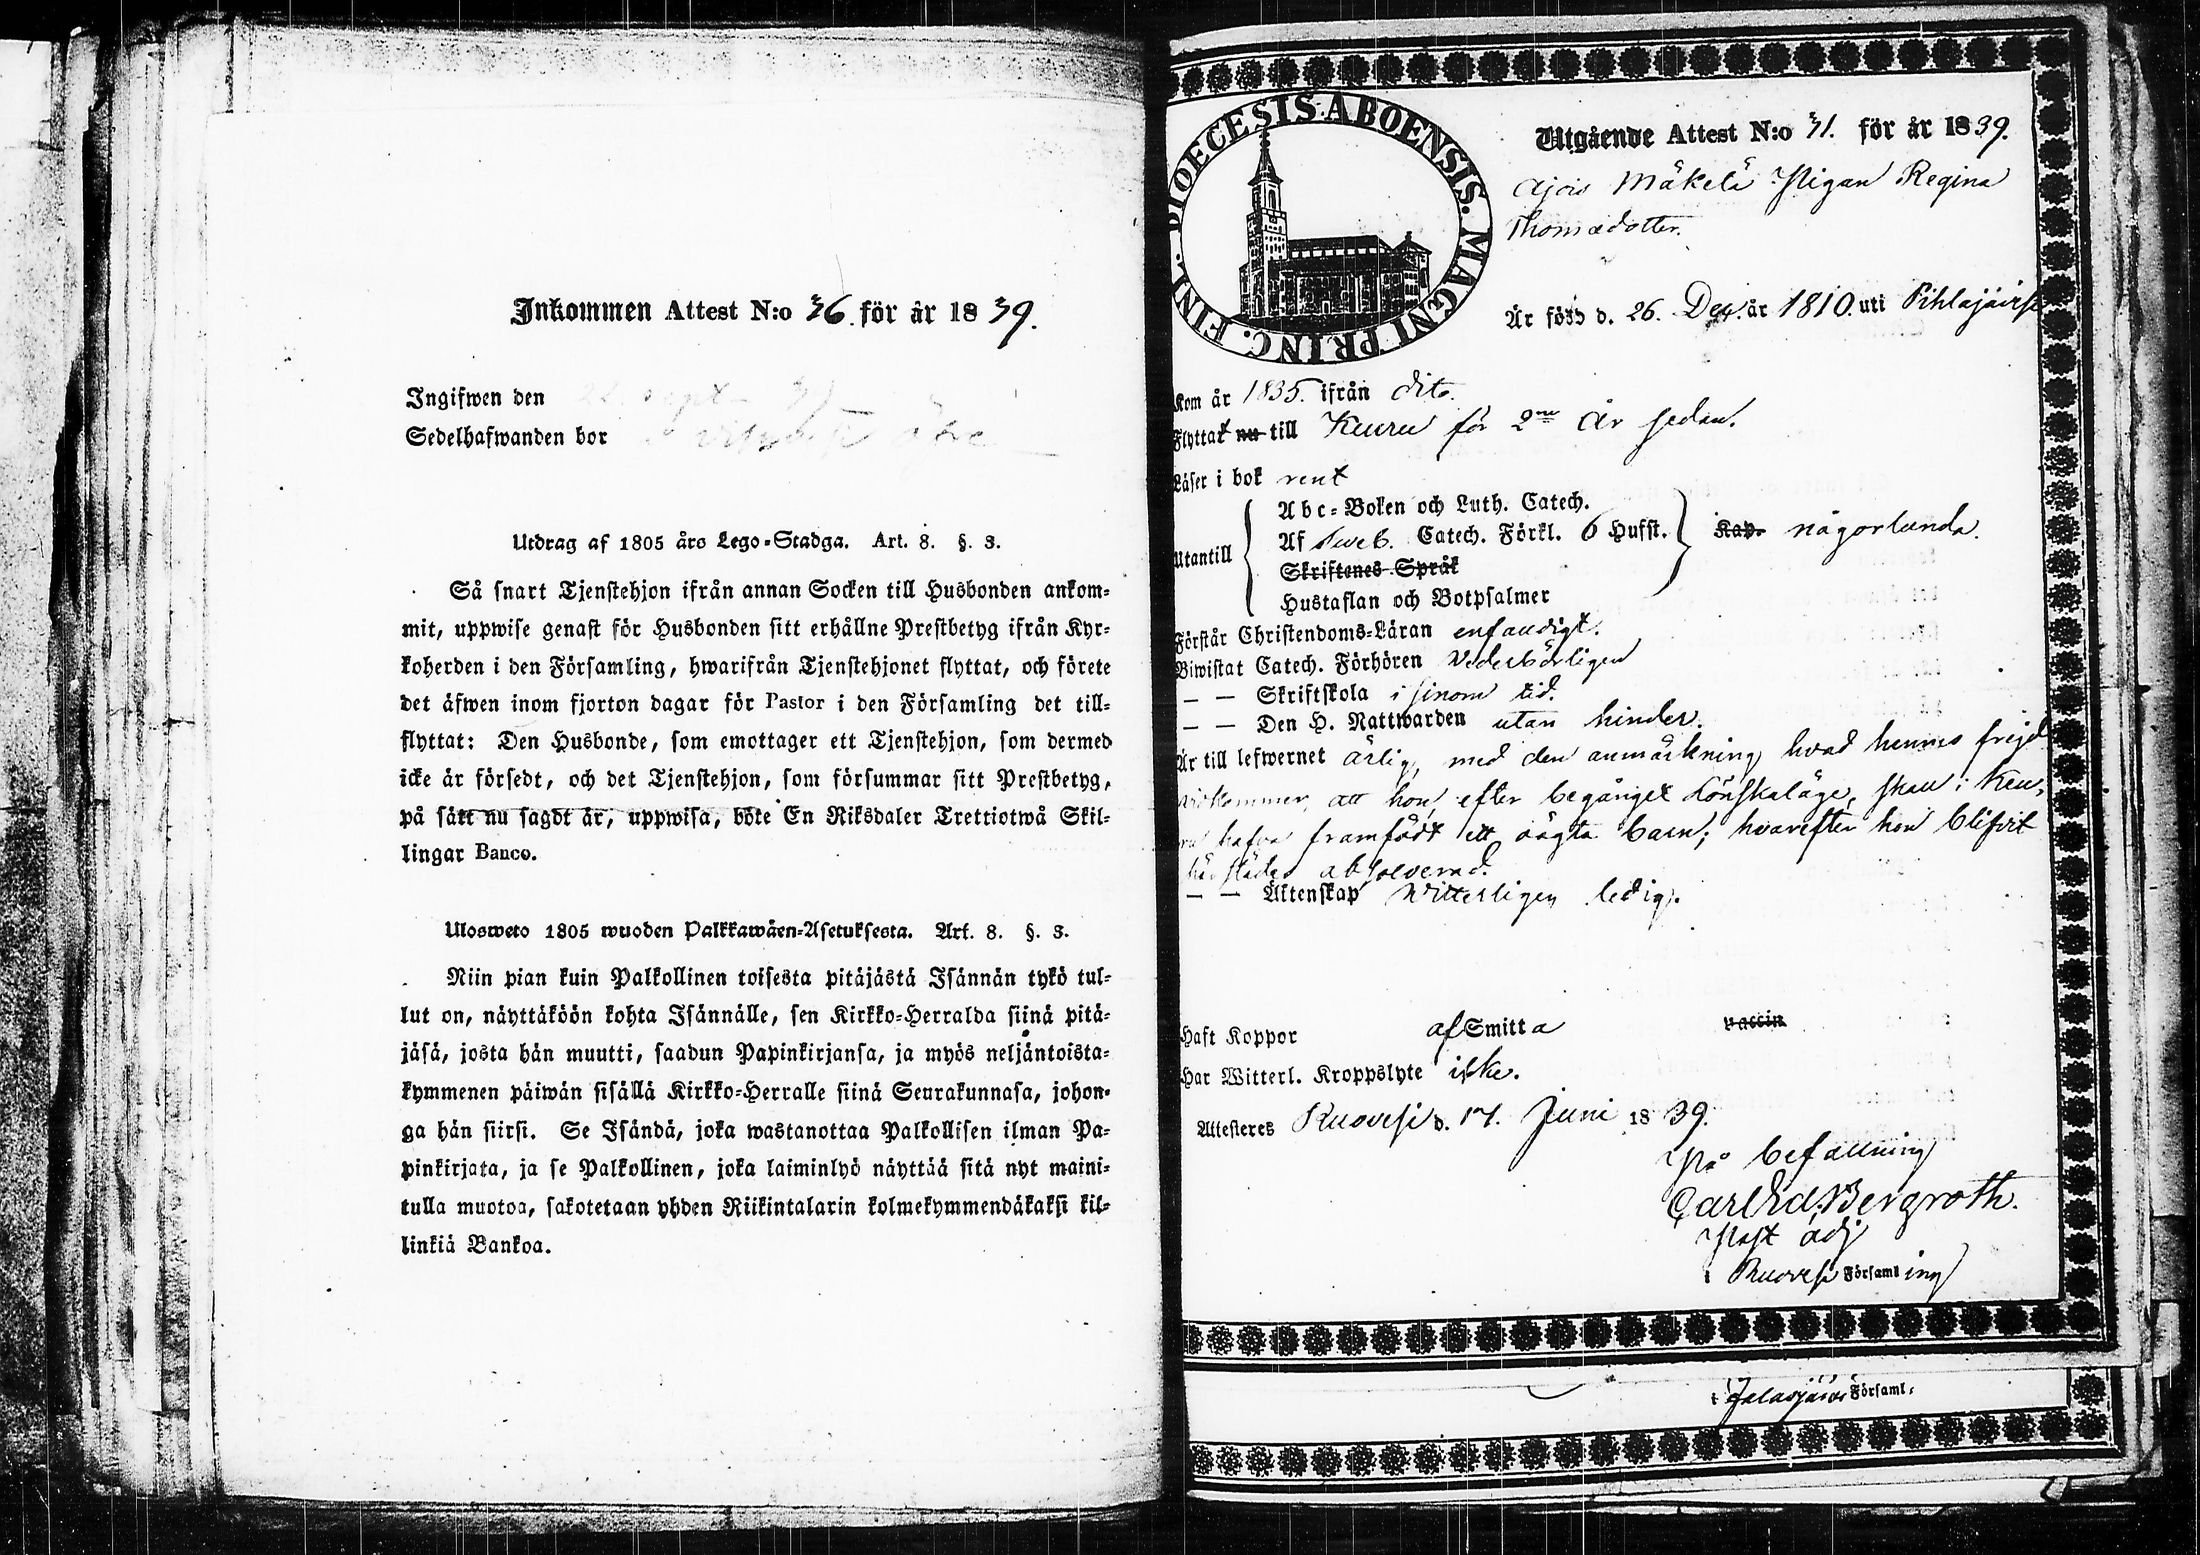 Inkommen Attest N:o 36. för år 1839.
Ingifwen den sept
Sedelhafwanden bor
Utdrag af 1805 års Lego-Stadga. Art. 8. §. 3.
Så snart Tjenstehjon ifrån annan Socken till Husbonden ankom-
mit, uppwise genast för Husbonden sitt erhållne Prestbetyg ifrån Kyr-
koherden i den Församling, hwarifrån Tjenstehjonet flyttat, och förete
det äfwen inom fjorton dagar för Pastor i den Församling det till-
flyttat: Den Husbonde, som emottager ett Tjenstehjon, som dermed
icke är försedt, och det Tjenstehjon, som försummar sitt Prestbetyg,
på sätt nu sagdt är, uppwisa, böte En Riksdaler Trettiotwå Skil-
lingar Banco.
Ulosweto 1805 wuoden Palkkawäen-Asetuksesta. Art. 8. §. 3.
Niin pian kuin Palkollinen toisesta pitäjästä Isännän tykö tul-
lut on, näyttäköön kohta Isännälle, sen Kirkko-Herralda siinä pitä-
jäsä, josta hän muutti, saadun Papinkirjansa, ja myös neljäntoista-
kymmenen päiwän sisällä Kirkko-Herralle siinä Seurakunnasa, johon-
ga hän siirsi. Se Isändä, joka wastanottaa Palkollisen ilman Pa-
pinkirjata, ja se Palkollinen, joka laiminlyö näyttää sitä nyt maini-
tulla muotoa, sakotetaan yhden Riikintalarin kolmekymmendäkaksi kil-
linkiä Bankoa.
DIOECESIS ABOENSIS. MAGNI PRINC. FINL.
Utgående Attest N:o 31. för år 1839.
Ajois Mäkelä Pigan Regina
Thomædotter.
Är född d. 26. Dec. år 1810. uti Pihlajävesi
Kom år 1835. ifrån dito.
Flyttat nu till Keuru för 2ne år sedan.
Läser i bok rent
Utantill
Abc-Boken och Luth. Catech.
Af Sveb. Catech. Förkl. 6 Hufst.
Skriftenes Språk
Hustaflan och Botpsalmer
Kap. någorlunda.
Förstår Christendoms-Läran enfaudigt.
Biwistat Catech. Förhören Vederbörligen
— — Skriftskola i sinom tid.
— — Den H. Nattwarden utan hinder.
Är till lefwernet ärlig, med den anmärkning hvad hennes frejd
vidkommer, att hon, efter begånget Lönskaläge, skall i Keu-
ru hafva framfödt ett oägta barn; hvarefter hon blifvit
härstädes absolverad.
— — Äktenskap Witterligen ledig.
Haft Koppor af Smitta vaccin
Har Witterl. Kroppslyte icke.
Attesteres Ruovesi d. 17. Juni 1839.
På befallning
Carl Ed. Bergroth.
Past adj
i Ruovesi Församling
i Jalasjärvi Församl.